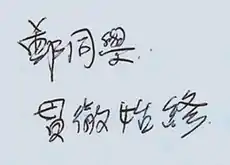 鄭同嬰
貫徹始終